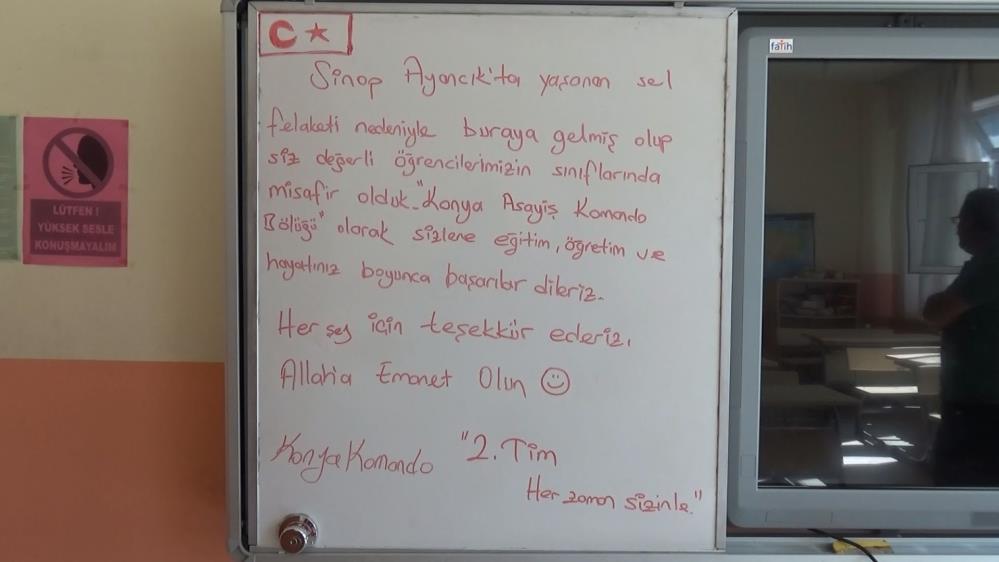 LÜTFEN !
YÜKSEK SESLE
KONUŞMAYALIM
Sinop Ayancık'ta yaşanan sel
felaketi nedeniyle buraya gelmiş olup
siz değerli öğrencilerimizin sınıflarında
misafir olduk. "Konya Asayiş Komando
Bölüğü" olarak sizlere eğitim, öğretim ve
hayatınız boyunca başarılar dileriz.
Her şey için teşekkür ederiz.
Allah'a Emanet Olun
Konya Komando "2. Tim
Her zaman sizinle."
fatih